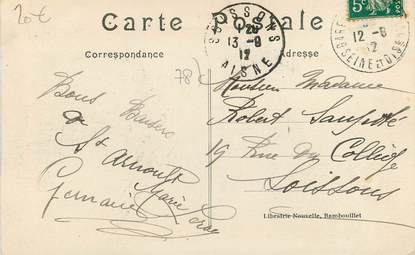 20€
Carte Postale
SOISSONS
13-9
12
AISNE
12-9
12
SEINE ET OISE
5c
Correspondance
Adresse
78
Bons Baisers
de
St Arnoult
Marie
Germaine
Monsieur Madame
Robert
19 Rue du Collège
Soissons
Librairie-Nouvelle, Rambouillet